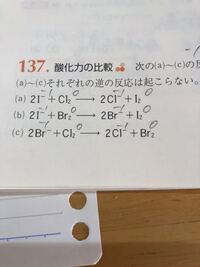 137. 酸化力の比較 次の(a)~(c)の反
(a)~(c)それぞれの逆の反応は起こらない。
(a) 2I⁻+Cl₂ ⟶ 2Cl⁻+I₂
(b) 2I⁻+Br₂ ⟶ 2Br⁻+I₂
(c) 2Br⁻+Cl₂ ⟶ 2Cl⁻+Br₂